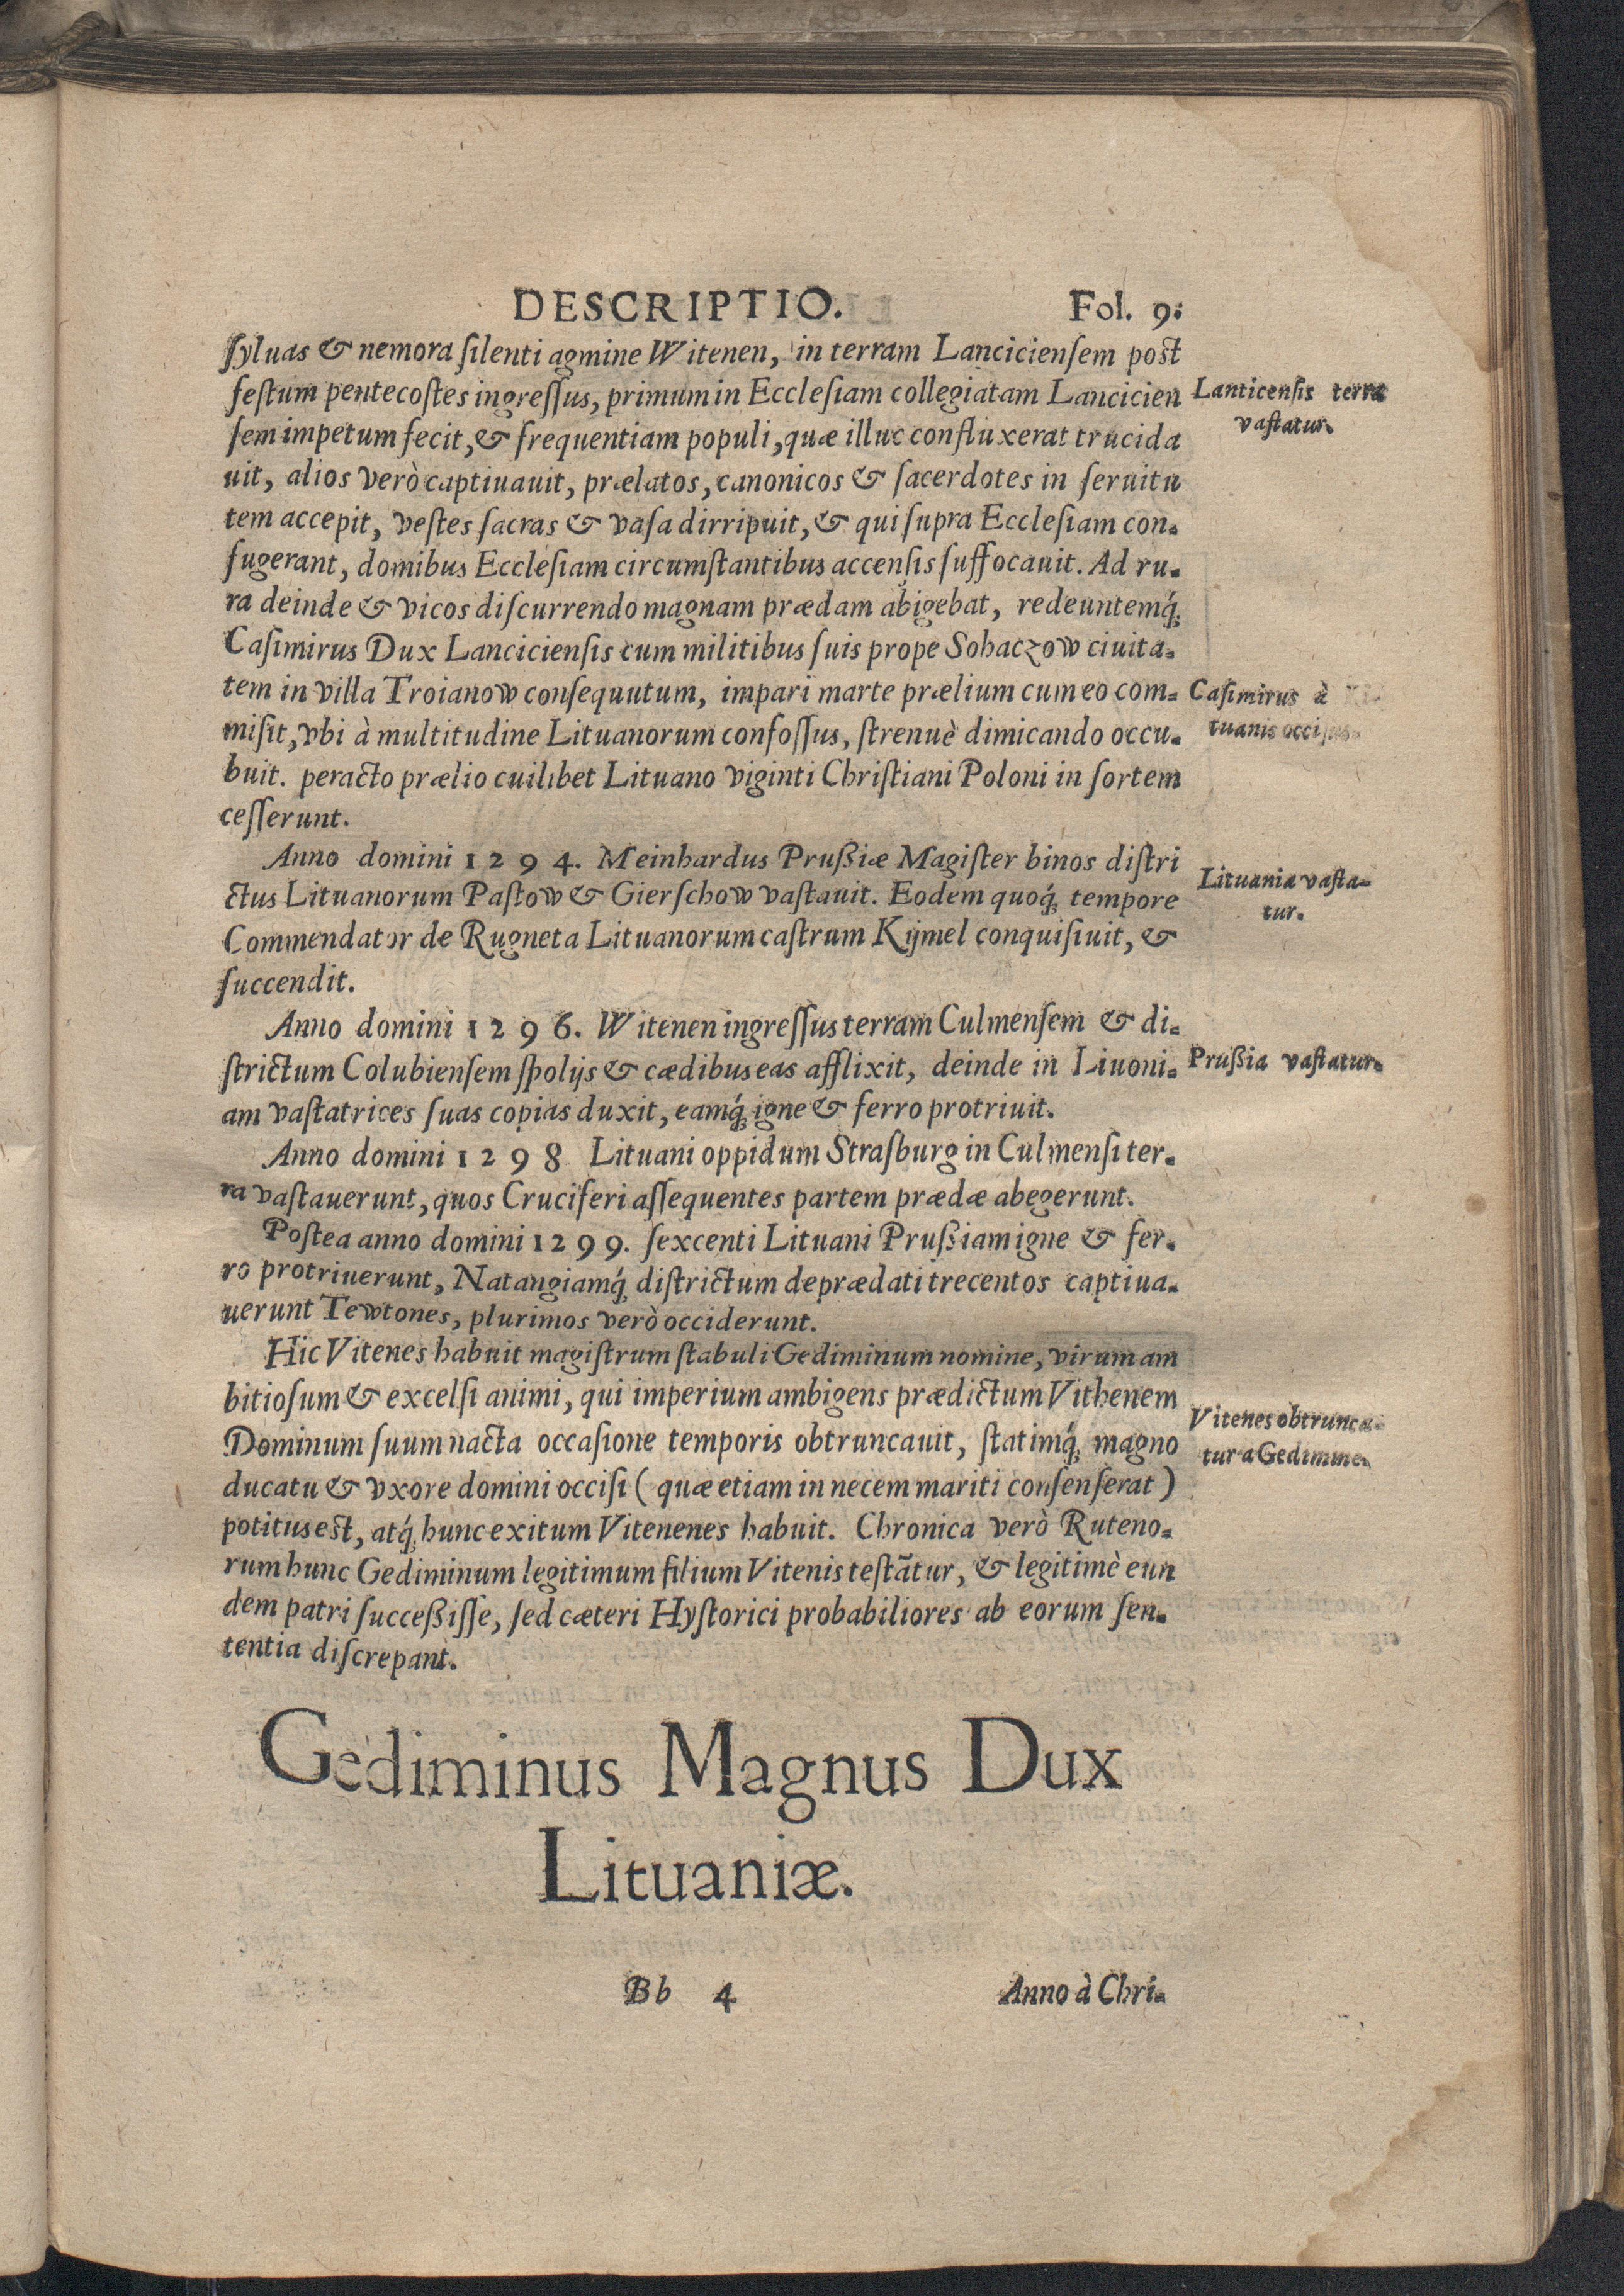 DESCRIPTIO. Fol. 9.
ſyluas & nemora ſilenti agmine Witenen, in terram Lancicienſem poſt
feſtum pentecoſtes ingreſſus, primum in Eccleſiam collegiatam Lancicien
ſem impetum fecit, & frequentiam populi, quæ illuc confluxerat trucida
uit, alios verò captiuauit, prælatos, canonicos & ſacerdotes in ſeruitu
tem accepit, veſtes ſacras & vaſa dirripuit, & qui ſupra Eccleſiam con-
fugerant, domibus Eccleſiam circumſtantibus accenſis ſuffocauit. Ad ru-
ra deinde & vicos diſcurrendo magnam prædam abigebat, redeuntemq́;
Caſimirus Dux Lancicienſis cum militibus ſuis prope Sohaczow ciuita-
tem in villa Troianow conſequutum, impari marte prælium cum eo com-
miſit, vbi à multitudine Lituanorum confoſſus, ſtrenuè dimicando occu-
buit. peracto prælio cuilibet Lituano viginti Chriſtiani Poloni in ſortem
ceſſerunt.
Anno domini 1294. Meinhardus Prußiæ Magiſter binos diſtri
ctus Lituanorum Paſtow & Gierſchow vaſtauit. Eodem quoq́; tempore
Commendator de Rugneta Lituanorum caſtrum Kijmel conquiſiuit, &
ſuccendit.
Anno domini 1296. Witenen ingreſſus terram Culmenſem & di-
ſtrictum Colubienſem ſpolijs & cædibus eas afflixit, deinde in Liuoni-
am vaſtatrices ſuas copias duxit, eamq́; igne & ferro protriuit.
Anno domini 1298 Lituani oppidum Straſburg in Culmenſi ter-
ra vaſtauerunt, quos Cruciferi aſſequentes partem prædæ abegerunt.
Poſtea anno domini 1299. ſexcenti Lituani Prußiam igne & fer-
ro protriuerunt, Natangiamq́; diſtrictum deprædati trecentos captiua-
uerunt Tewtones, plurimos verò occiderunt.
Hic Vitenes habuit magiſtrum ſtabuli Gediminum nomine, virum am
bitioſum & excelſi animi, qui imperium ambigens prædictum Vithenem
Dominum ſuum nacta occaſione temporis obtruncauit, ſtatimq́; magno
ducatu & vxore domini occiſi (quæ etiam in necem mariti conſenſerat)
potitus eſt, atq́; hunc exitum Vitenenes habuit. Chronica verò Ruteno-
rum hunc Gediminum legitimum filium Vitenis teſtãtur, & legitimè eun
dem patri ſucceßiſſe, ſed cæteri Hyſtorici probabiliores ab eorum ſen-
tentia diſcrepant.
Gediminus Magnus Dux
Lituaniæ.
Bb 4 Anno à Chri-
Lanticenſis terra
vaſtatur.
Caſimirus à
tuanis occiſus.
Lituania vaſta-
tur.
Prußia vaſtatur.
Vitenes obtrunca-
tur a Gedimine.